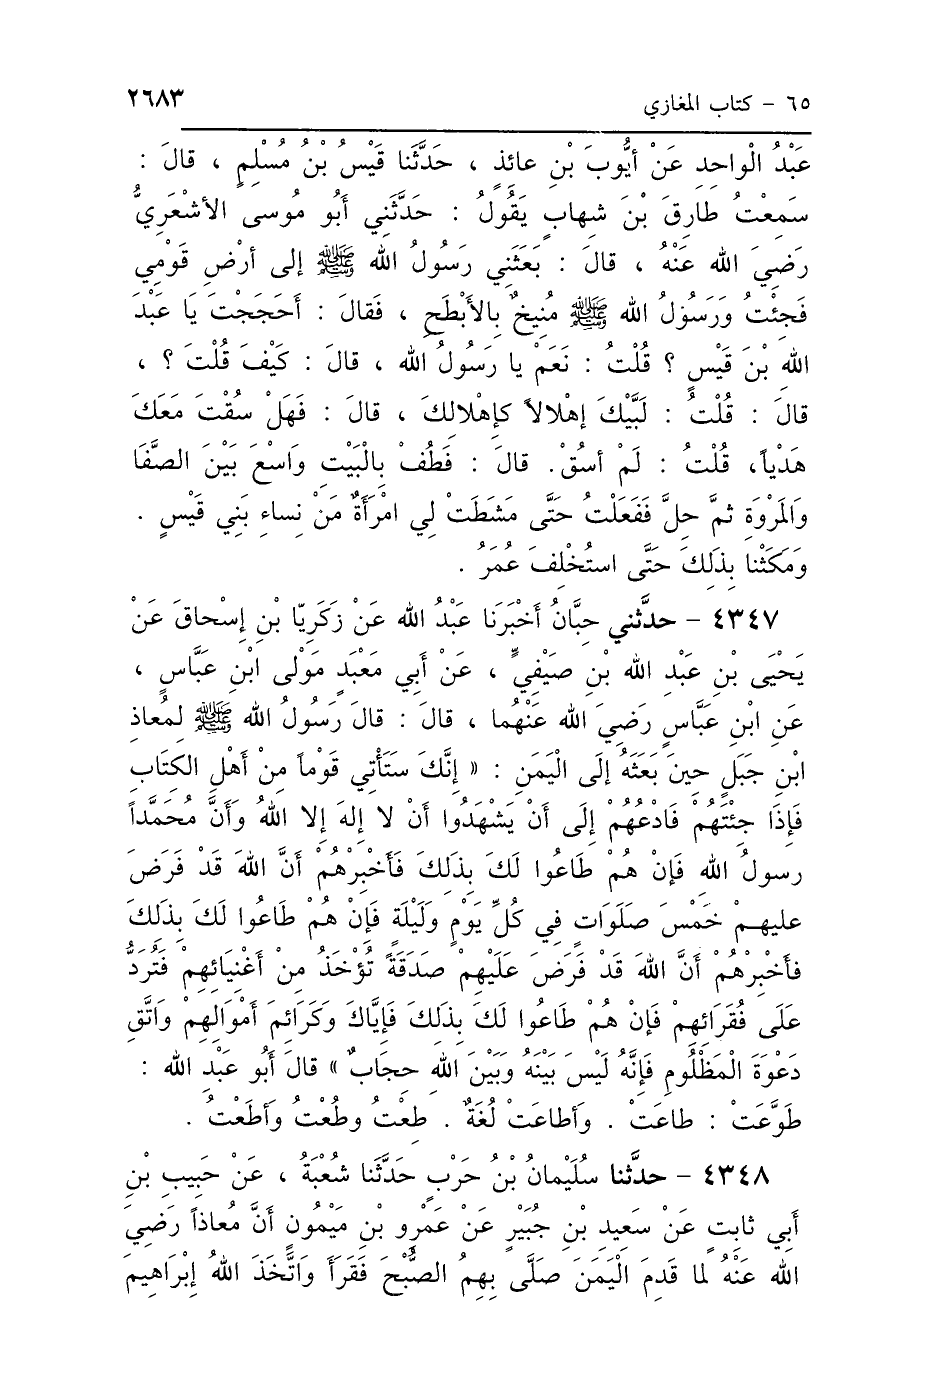 ٦٥ - كتاب المغازي ٢٦٨٣
عَبْدُ الْواحِدِ عَنْ أيُّوبَ بْنِ عائذٍ ، حَدَّثَنا قَيْسُ بْنُ مُسْلِمٍ ، قالَ :
سَمِعْتُ طارِقَ بْنَ شِهابٍ يَقُولُ : حَدَّثَنِي أَبُو مُوسى الأشْعَرِيُّ
رَضِيَ الله عَنْهُ ، قالَ : بَعَثَنِي رَسُولُ الله ﷺ إلى أرْضِ قَوْمِي
فَجِئْتُ وَرَسُوْلُ الله ﷺ مُنِيخٌ بِالأَبْطَحِ ، فَقالَ : أَحَجَجْتَ يَا عَبْدَ
الله بْنَ قَيْسٍ ؟ قُلْتُ : نَعَمْ يا رَسُولُ الله ، قالَ : كَيْفَ قُلْتَ ؟ ،
قالَ : قُلْتُ : لَبَّيْكَ إهْلالاً كإهْلالِكَ ، قالَ : فَهَلْ سُقْتَ مَعَكَ
هَدْياً، قُلْتُ : لَمْ أسُقْ. قالَ : فَطُفْ بِالْبَيْتِ وَاسْعَ بَيْنَ الصَّفَا
وَالمَرْوَةِ ثمَّ حِلَّ فَفَعَلْتُ حَتَّى مَشَطَتْ لِي امْرَأَةٌ مَنْ نِساءِ بَنِي قَيْسٍ .
وَمَكَثْنا بِذَلِكَ حَتَّى استُخْلِفَ عُمَرُ .
٤٣٤٧ - حدَّثني حِبَّانُ أَخْبَرَنَا عَبْدُ الله عَنْ زَكَرِيّا بْنِ إسْحاقَ عَنْ
يَحْيَى بْنِ عَبْدِ الله بْنِ صَيْفِيٍّ ، عَنْ أبي مَعْبَدٍ مَوْلى ابْنِ عَبَّاسٍ ،
عَنِ ابْنِ عَبَّاسٍ رَضِيَ الله عَنْهُما ، قالَ : قالَ رَسُولُ الله ﷺ لمُعاذِ
ابْنِ جَبَلٍ حِينَ بَعَثَهُ إلَى الْيَمَنِ : « إنَّكَ سَتَأْتِي قَوْماً مِنْ أهْلِ الكِتَابِ
فَإذَا جِئْتَهُمْ فَادْعُهُمْ إلَى أنْ يَشْهَدُوا أنْ لا إلهَ إلا اللهُ وَأنَّ مُحَمَّداً
رسولُ الله فَإنْ هُمْ طَاعُوا لَكَ بِذَلِكَ فَأَخْبِرْهُم أنَّ اللهَ قَدْ فَرَضَ
عليهِمْ خَمْسَ صَلَوَاتٍ فِي كُلِّ يَوْمٍ وَلَيْلَةٍ فَإنْ هُمْ طَاعُوا لَكَ بِذَلِكَ
فأخْبِرْهُمْ أنَّ اللهَ قَدْ فَرَضَ عَلَيْهِمْ صَدَقَةً تُؤْخَذُ مِنْ أغْنِيائِهِمْ فَتُرَدُّ
عَلَى فُقَرَائِهِمْ فَإنْ هُمْ طاعُوا لَكَ بِذَلِكَ فَإيَّاكَ وَكَرَائِمَ أمْوَالِهِمْ وَاتَّقِ
دَعْوَةَ الْمَظْلُومِ فَإنَّهُ لَيْسَ بَيْنَهُ وَبَيْنَ اللهِ حِجَابٌ » قالَ أَبُو عَبْدِ الله :
طَوَّعَتْ : طاعَتْ . وَأطاعَتْ لُغَةٌ . طِعْتُ وطُعْتُ وَأطَعْتُ .
٤٣٤٨ - حدَّثنا سُلَيْمانُ بْنُ حَرْبٍ حَدَّثَنا شُعْبَةُ ، عَنْ حَبِيبِ بْنِ
أبِي ثابِتٍ عَنْ سَعِيدِ بْنِ جُبَيْرٍ عَنْ عَمْرِو بْنِ مَيْمُونٍ أنَّ مُعاذاً رَضِيَ
الله عَنْهُ لما قَدِمَ الْيَمَنَ صَلَّى بِهِمُ الصُّبْحَ فَقَرَأَ وَاتَّخَذَ اللهُ إبْرَاهِيمَ